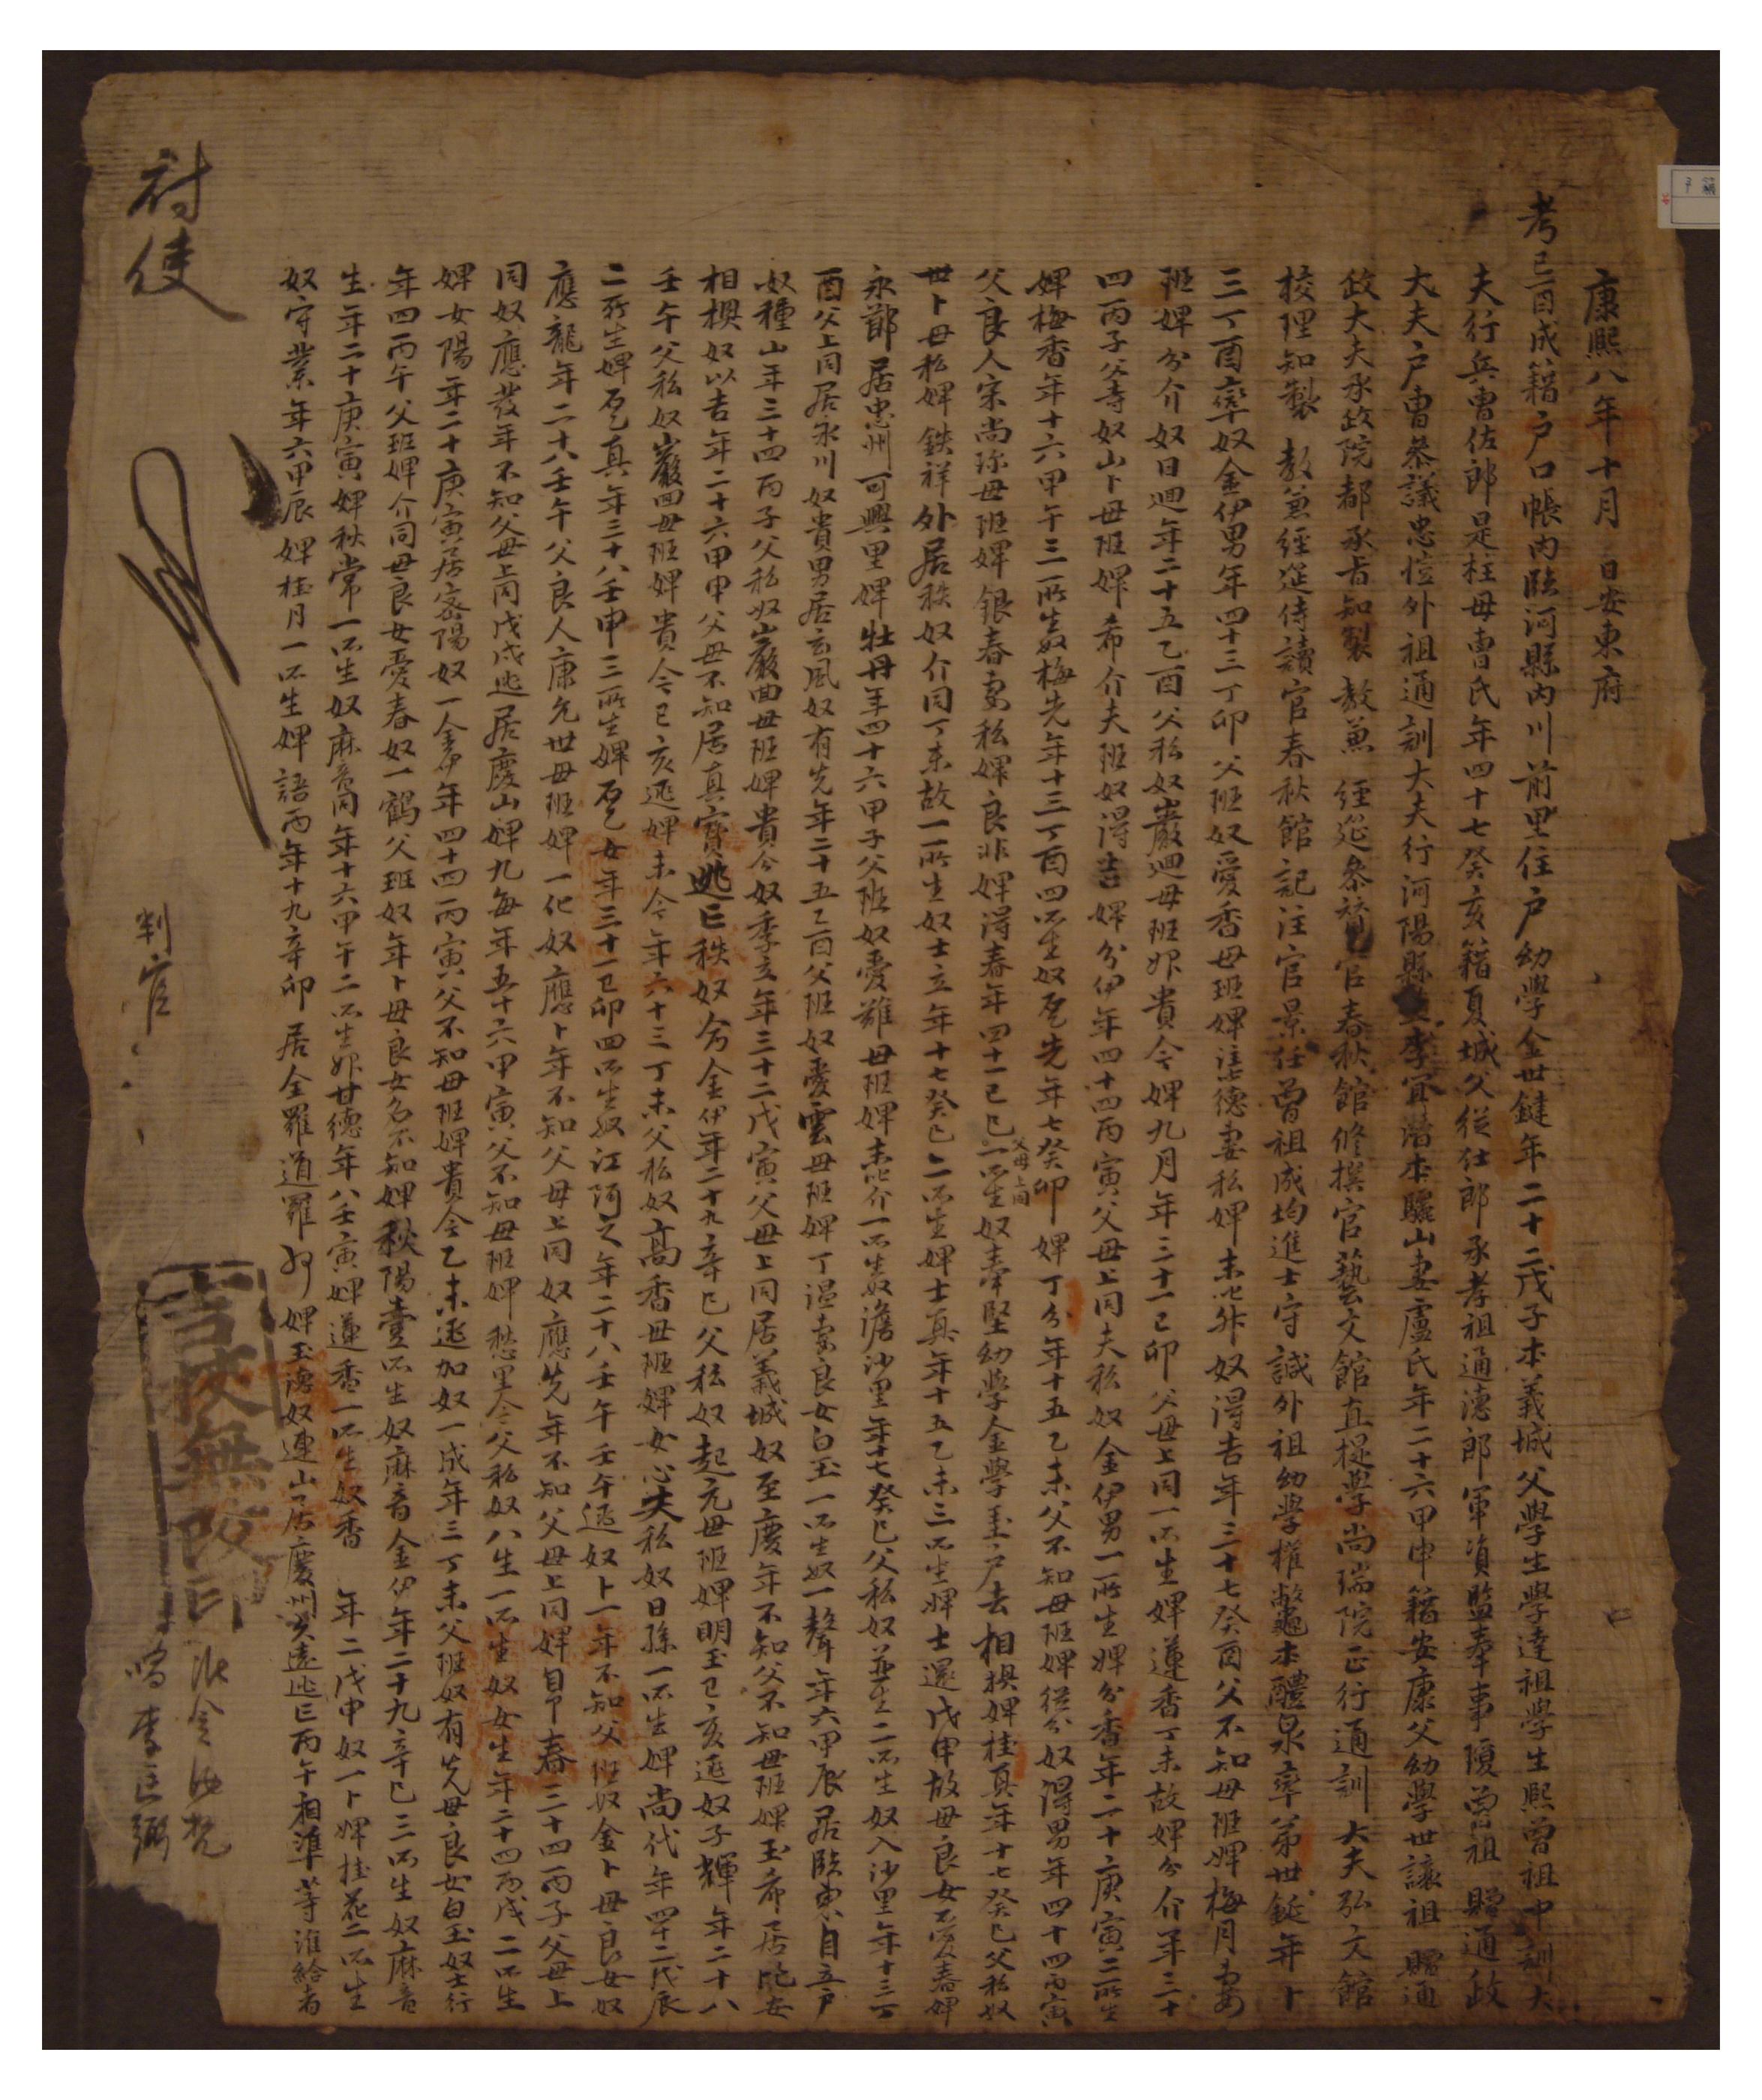 康熙八年十月 日安東府
考己酉成籍戶口帳內臨河縣內川前里住戶幼學金世鍵年二十二戊子本義城父學生學達祖學生熙曾祖中訓大
夫行兵曹佐郎是柱母曹氏年四十七癸亥籍夏城父從仕郎承孝祖通德郎軍資監奉事 曾祖 贈通政
大夫戶曹參議忠 外祖通訓大夫行河陽縣 李宜潛本驪山妻盧氏年二十六甲申籍安康父幼學世讓祖 贈通
政大夫承政院都承旨知製 教兼 經筵參贊官春秋館修撰官藝文館直提學尚瑞院正行通訓 大夫弘文館
校理知製 教兼經筵侍讀官春秋館記注官景任曾祖成均進士守諴外祖幼學權 本醴泉率弟世鋋年十
三丁酉率奴金伊男年四十三丁卯父班奴愛香母班婢 德妻私婢 奴得吉年三十七癸酉父不知母班婢梅月妻
班婢分介奴日迴年二十五乙酉父私奴巖迴母班婢貴今婢九月年三十一己卯父母上同一所生婢蓮香丁未故婢分介年三十
四丙子父寺奴山卜母班婢希介夫班奴得吉婢分伊年四十四丙寅父母上同夫私奴金伊男一所生婢分香年二十庚寅二所生
婢梅香年十六甲午三所生奴梅先年十三丁酉四所生奴 先年七癸卯 婢丁分年十五乙未父不知母班婢從分奴得男年四十四丙寅
父良人宋尚 母班婢銀春妻私婢良非婢得春年四十一己巳父母上同二所生奴奉堅幼學金學 戶去相換婢桂真年十七癸巳父私奴
世卜母私婢鉄祥外居秩奴介同丁未故一所生奴士立年十七癸巳二所生婢士真年十五乙未三所生婢士還戊申故母良女愛春婢
永節居忠州可興里婢牡丹年四十六甲子父班奴愛雄母班婢 介一所生奴 沙里年十七癸巳父私奴 生二所生奴入沙里年十三丁
酉父上同居永川奴貴男居玄風奴有先年二十五乙酉父班奴愛雲母班婢丁溫妻良女白玉一所生奴一聲年六甲辰居臨東自立戶
奴種山年三十四丙子父私奴巖回母班婢貴今奴季立年三十二戊寅父母上同居義城奴至慶年不知父不知母班婢玉希居 安
相換奴以吉年二十六甲申父母不知居真寶逃亡秩奴 金伊年二十九辛巳父私奴起元母班婢明玉己亥逃奴子輝年二十八
壬午父私奴巖回母班婢貴今己亥逃婢未今年六十三丁未父私奴高香母班婢女心夫私奴日孫一所生婢尚代年四十二戊辰
二所生婢 真年三十八壬申三所生婢 女年三十一己卯四所生奴江阿之年二十八壬午壬午逃奴卜一年不知父班奴金卜母良女奴
應龍年二十八壬午父良人康允世母班婢一化奴應卜年不知父母上同奴應先年不知父母上同婢 春三十四丙子父母上
同奴應發年不知父母上同戊戌逃居慶山婢九每年五十六甲寅父不知母班婢愁里今父私奴八生一所生奴女生年二十四丙戌二所生
婢女陽年二十庚寅居密陽奴一金伊年四十四丙寅父不知母班婢貴今乙未逃加奴一成年三丁未父班奴有先母良女白玉奴士行
年四丙午父班婢介同母良女愛春奴一鶴父班奴年卜母良女名不知婢秋陽一所生奴麻音金伊年二十九辛巳三所生奴麻音
生年二十庚寅婢秋常一所生奴麻音同年十六甲午二所生婢甘德年八壬寅婢蓮香一所生奴香 年二戊申奴一卜婢桂花二所生
奴守業年六甲辰婢桂月一所生婢語丙年十九辛卯居全羅道羅州婢玉 奴連山居慶州 逃亡丙午相準等准給者
府使
判官
周挾無改印